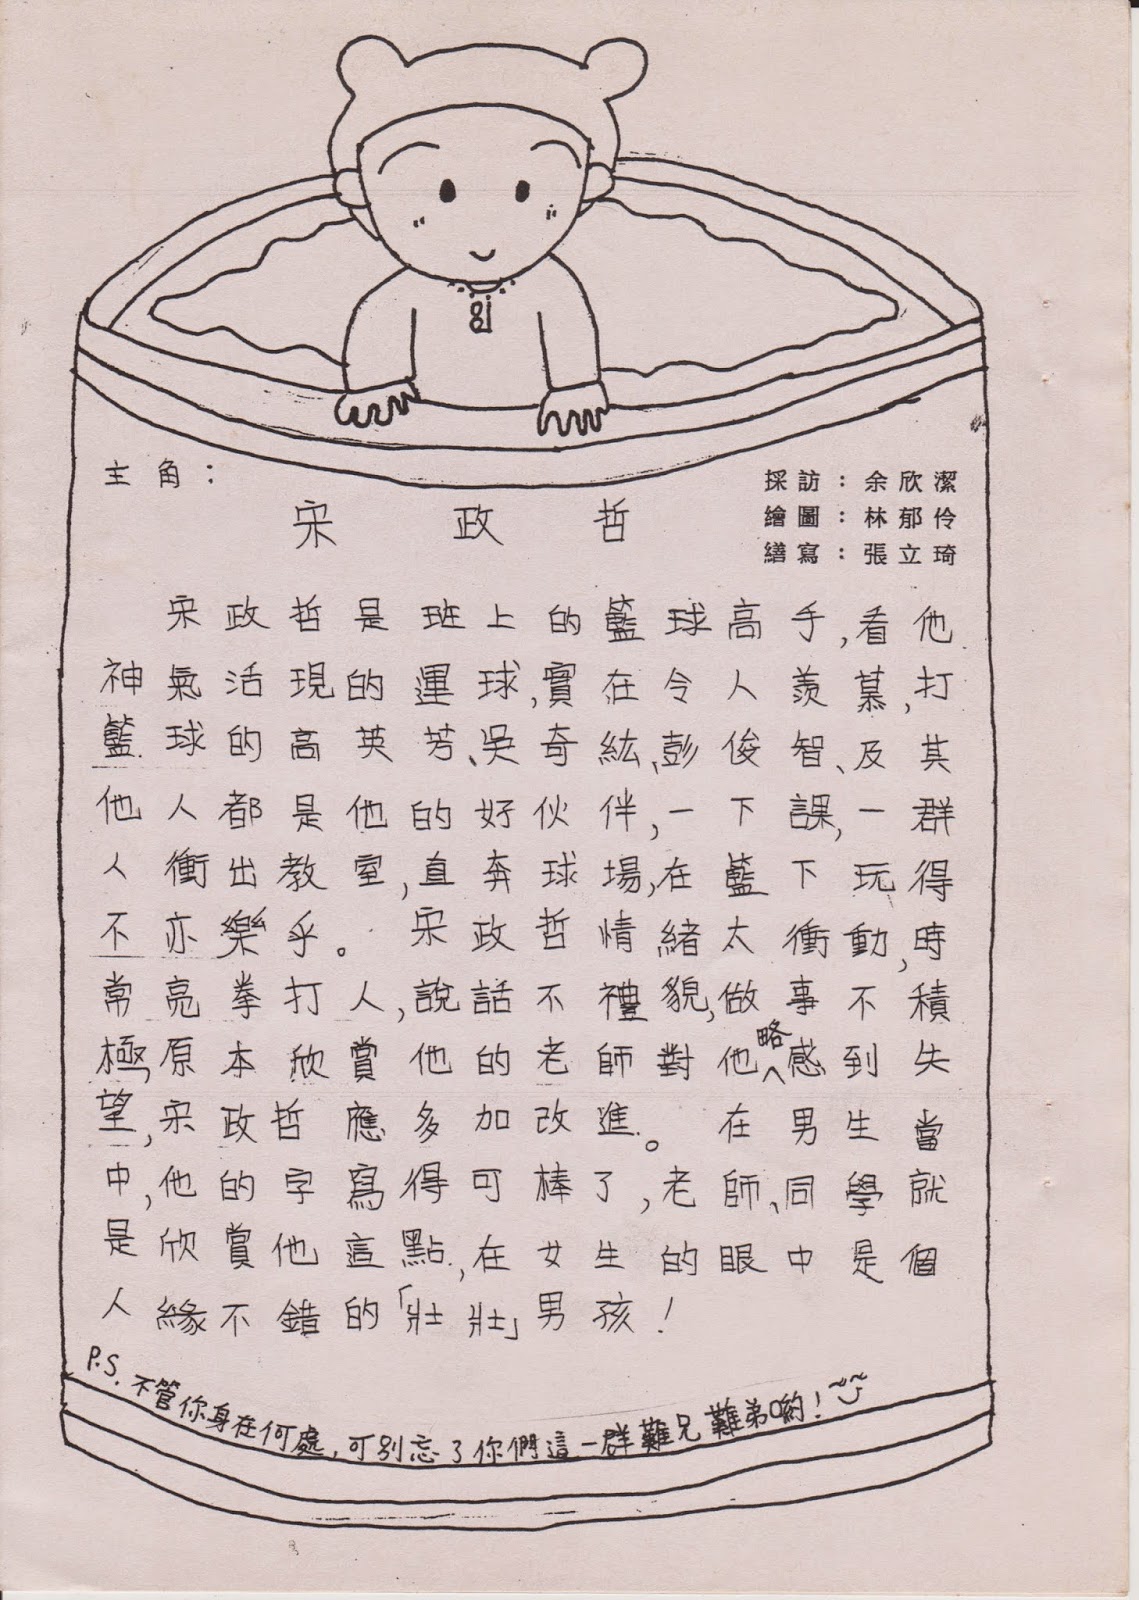 主角：
宋政哲
採訪：余欣潔
繪圖：林郁伶
繕寫：張立琦
宋政哲是班上的籃球高手,看他
神氣活現的運球,實在令人羨慕,打
籃球的高英芳、吳奇紘、彭俊智、及其
他人都是他的好伙伴,一下課,一群
人衝出教室,直奔球場,在籃下玩得
不亦樂乎。宋政哲情緒太衝動,時
常亮拳打人,說話不禮貌,做事不積
極,原本欣賞他的老師對他略感到失
望,宋政哲應多加改進。在男生當
中,他的字寫得可棒了,老師、同學就
是欣賞他這點,在女生的眼中是個
人緣不錯的「壯壯」男孩!
P.S.不管你身在何處,可別忘了你們這一群難兄難弟喲!